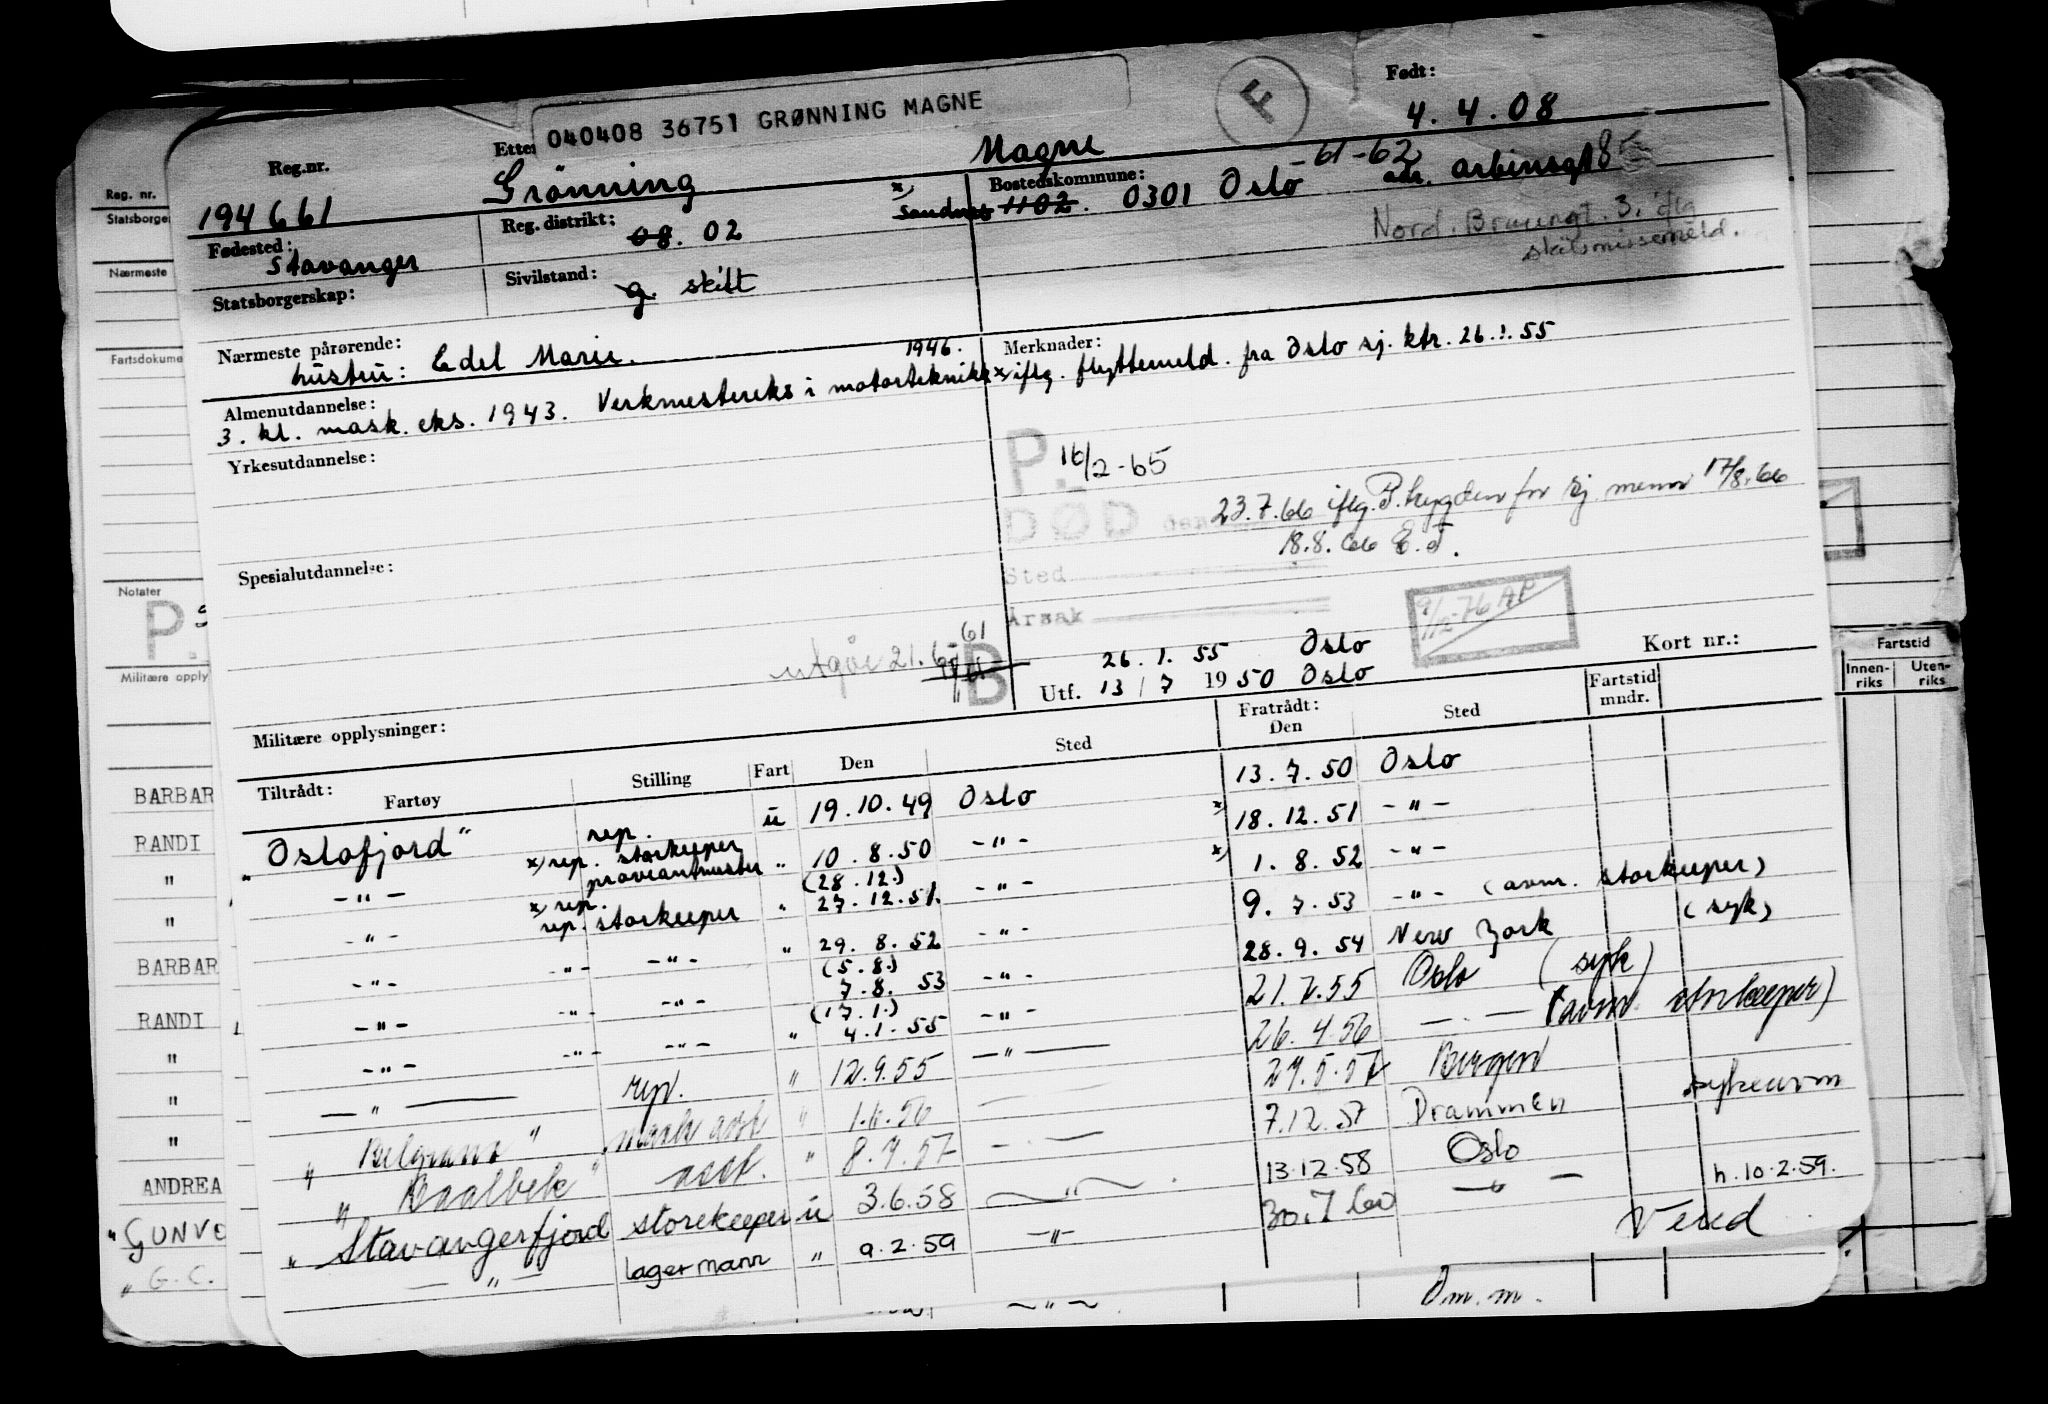 040408 36751 GRØNNING MAGNE
F
Født:
4.4.08
Reg.nr.
194661
Grönning
Magne
Fødested:
Stavanger
Reg. distrikt:
08. 02
x) Sandnes
Bostedskommune:
1102. 0301 Oslo -61-62
adr. Arbinsgt 8
Nord. Braungt. 3. iflg
skilsmissemeld.
Statsborgerskap:
Sivilstand:
g. skilt
Nærmeste pårørende:
hustru: Edel Marie.
1946.
Merknader:
x) iflg. flyttemeld. fra Oslo sj. ktr. 26.1.55
Almenutdannelse:
3. kl. mask. eks. 1943. Verkmestereks i motorteknikk
Yrkesutdannelse:
P. 16/2-65
DØD den 23.7.66 iflg. for sj. menn 17/8.66
18.8.66 E.J.
Spesialutdannelse:
Sted
Årsak
9/12-76 AP
utgår 21.6 61
B
26.1.55 Oslo
Utf. 13/7 1950 Oslo
Kort nr.:
Militære opplysninger:
Tiltrådt:
Fartøy
Stilling
Fart
Den
Sted
Fratrådt:
Den
Sted
Fartstid
mndr.
"Oslofjord" rep. u 19.10.49 Oslo 13.7.50 Oslo
-"- x) rep. storkeeper proviantmester " 10.8.50 -"- x) 18.12.51 -"-
-"- x) rep. rep. storkeeper " (28.12.) 27.12.51. -"- x) 1.8.52 -"-
-"- -"- -"- " 29.8.52 -"- 9.7.53 -"- (avm. storkeeper)
-"- -"- -"- (5.8.) 7.8.53 -"- 28.9.54 New York (syk)
-"- -"- -"- " (17.1.) 4.1.55 -"- 21.7.55 Oslo (syk)
-"- rep. " 12.9.55 -"- 26.4.56 -"- (avm storkeeper)
" " " 29.5.57 Bergen
" Baalbek" asst. " 8.7.57 -"- 7.12.57 Drammen sykeavm
" Stavangerfjord storekeeper u 3.6.58 -"- 13.12.58 Oslo
-"- lagermann " 9.2.59 -"- 30.7.60 -"- h. 10.2.59.
Reg. nr.
Statsborger
Nærmeste
Fartsdokume
Notater
P.
Militære opply
BARBAR
RANDI
"
"
BARBAR
RANDI
"
"
"
ANDREA
"GUNVO
" G.C.
Fartstid
Innen-
riks
Uten-
riks
-"-
Dm.m.